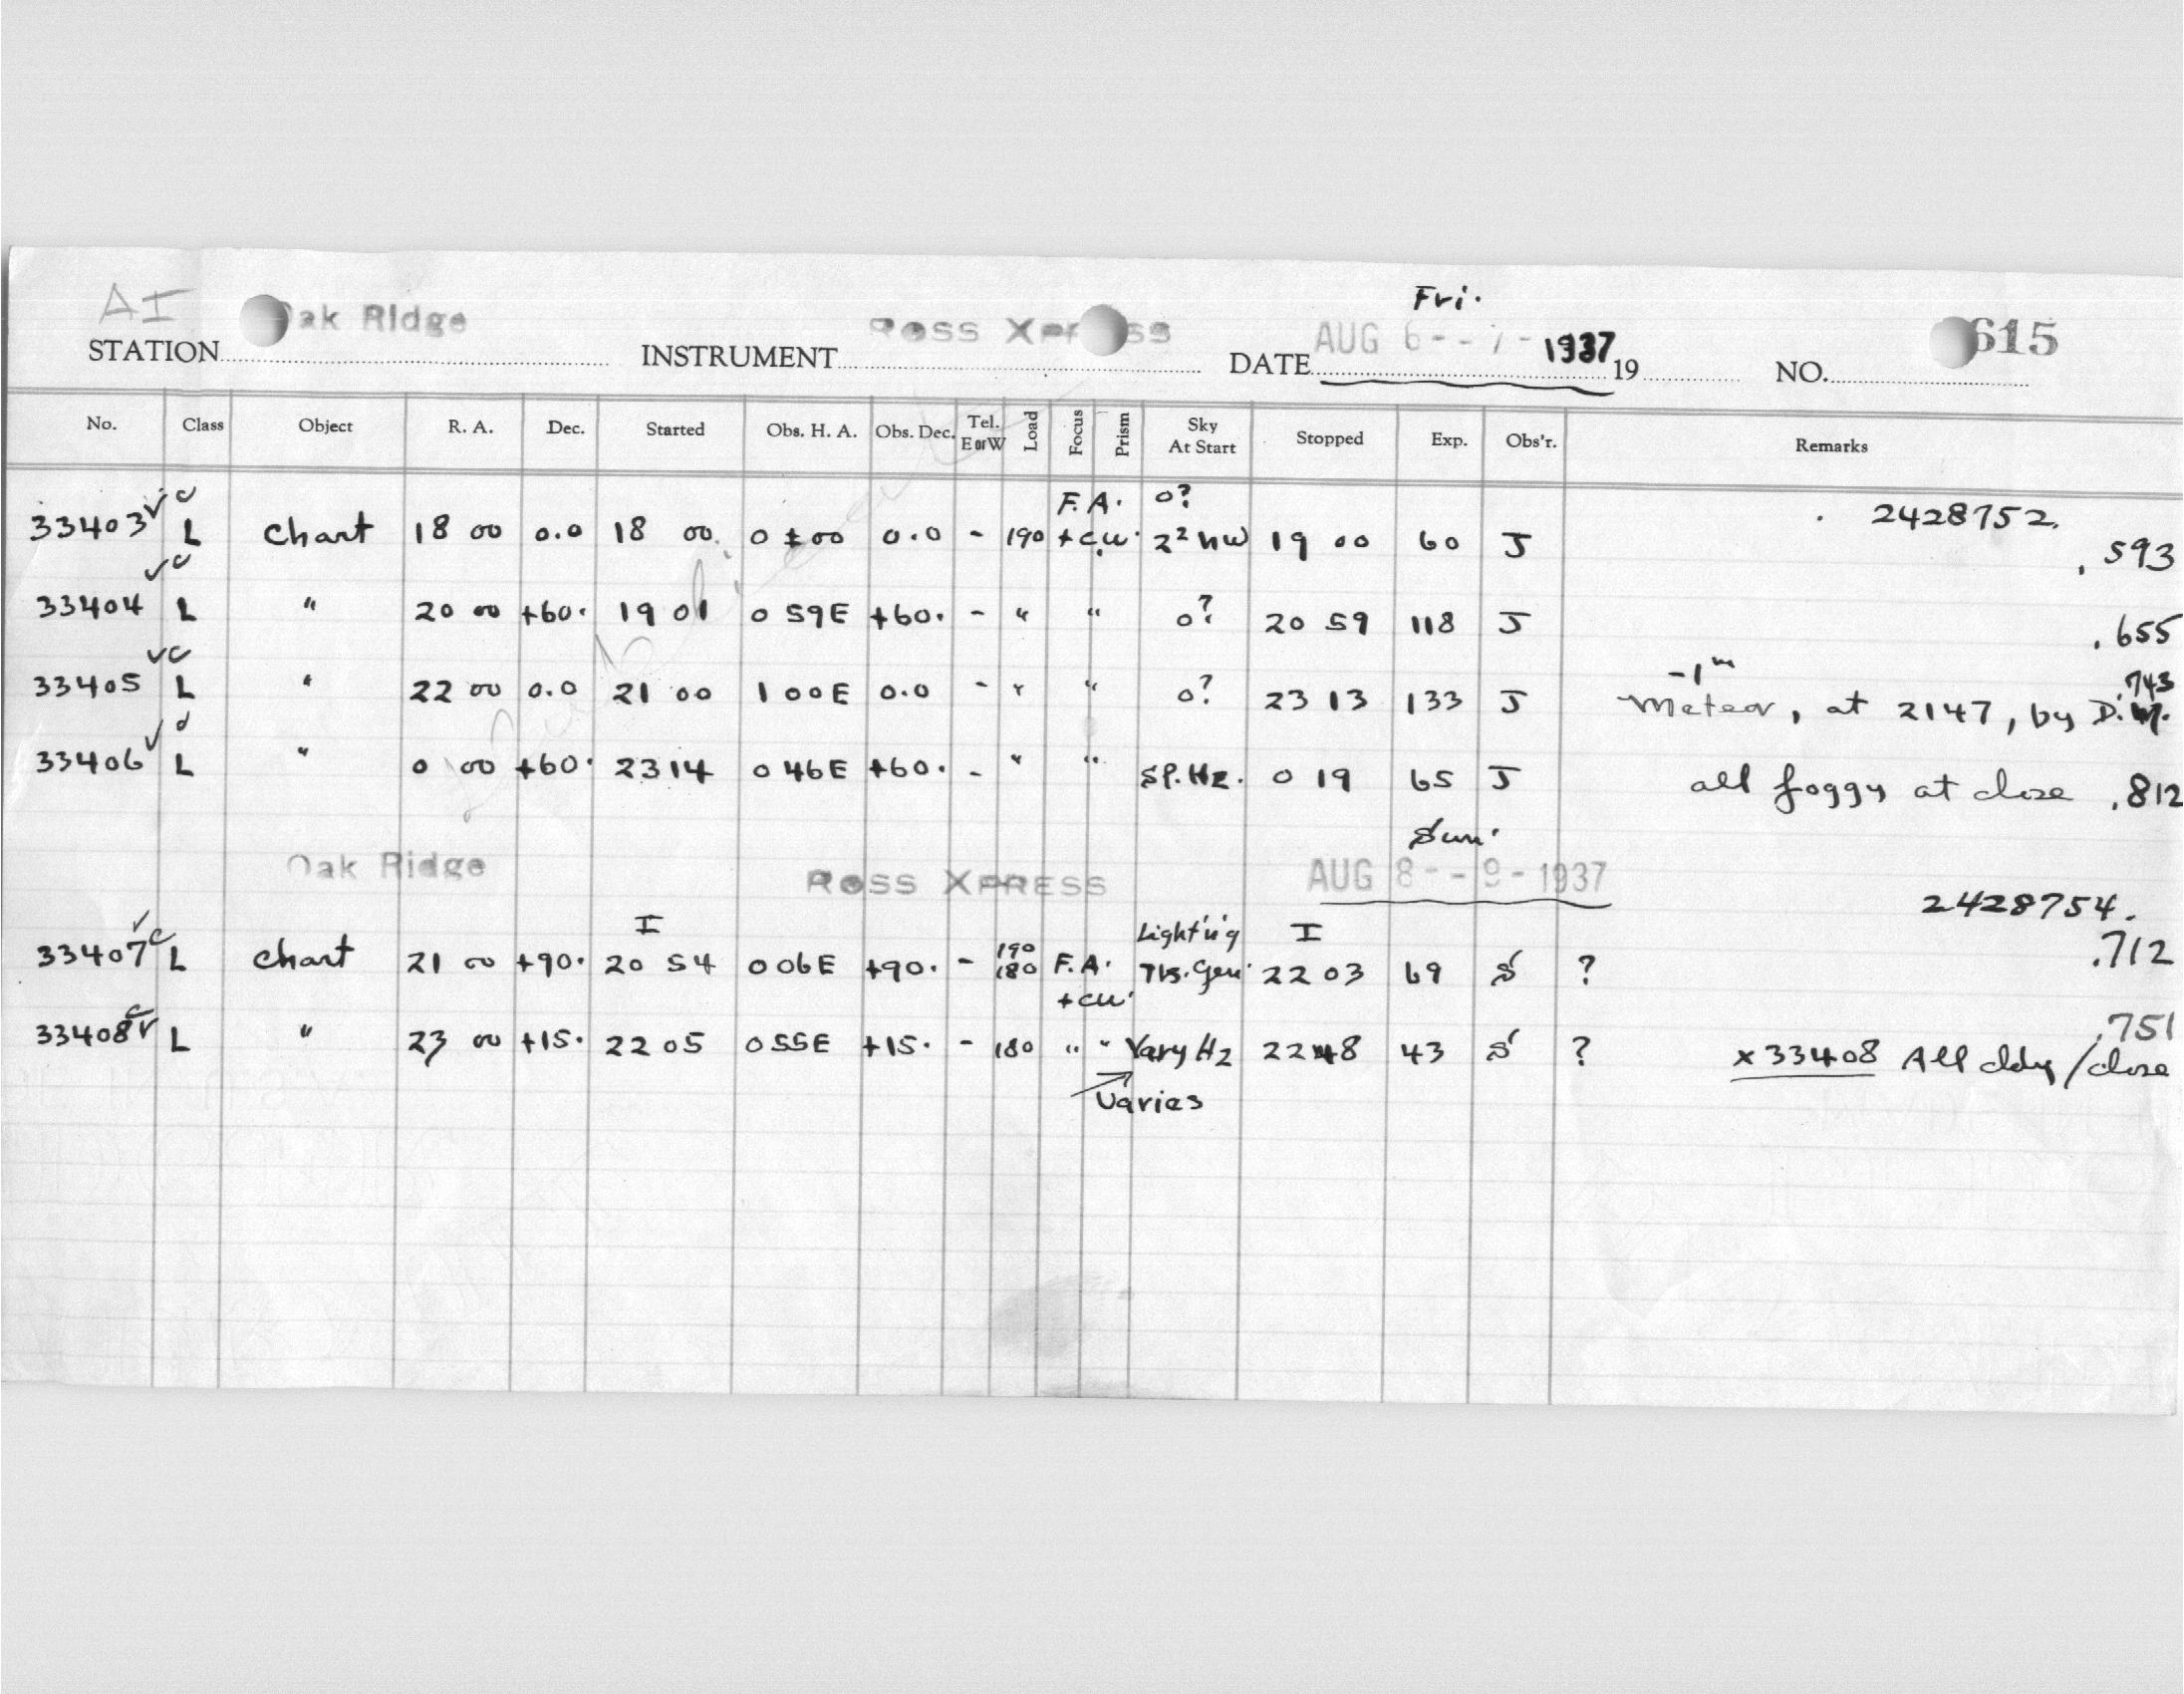 AI
Fri.
STATION Oak Ridge INSTRUMENT Ross Xpress DATE AUG 6 - - 7 - 1937 19 NO. 615
No. Class Object R. A. Dec. Started Obs. H. A. Obs. Dec. Tel. E or W Load Focus Prism Sky At Start Stopped Exp. Obs'r. Remarks
c F.A. o? 2428752.
33403 L Chart 18 00 0.0 18 00 0 ± 00 0.0 - 190 + cu. 2² NW 19 00 60 J .593
c
33404 L " 20 00 +60. 19 01 0 59E +60. - " " o? 20 59 118 J .655
c -1ᵐ .743
33405 L " 22 00 0.0 21 00 1 00E 0.0 - " " o? 23 13 133 J Meteor, at 2147, by D.M.
d
33406 L " 0 00 +60. 23 14 0 46E +60. - " " SP. Hz. 0 19 65 J all foggy at close .812
Sun.
Oak Ridge Ross XPRESS AUG 8 - - 9 - 1937
2428754.
I Light'n'g I
33407 c L Chart 21 00 +90. 20 54 0 06E +90. - 190 180 F.A. Ths. Gen. 22 03 69 S ? .712
+ cu.
33408 c L " 23 00 +15. 22 05 0 55E +15. - 180 " " Vary Hz 22 48 43 S ? .751
x 33408 All cldy / close
Varies